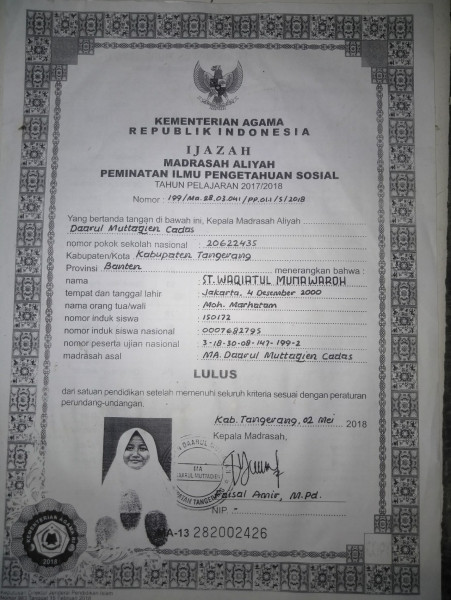 KEMENTERIAN AGAMA
REPUBLIK INDONESIA
IJAZAH
MADRASAH ALIYAH
PEMINATAN ILMU PENGETAHUAN SOSIAL
TAHUN PELAJARAN 2017/2018
Nomor : 199/Ma.28.03.041/PP.01.1/5/2018
Yang bertanda tangan di bawah ini, Kepala Madrasah Aliyah
Daarul Muttaqien Cadas
nomor pokok sekolah nasional : 20622435
Kabupaten/Kota Kabupaten Tangerang
Provinsi Banten menerangkan bahwa :
nama : ST. WAQIATUL MUNAWAROH
tempat dan tanggal lahir : Jakarta, 4 Desember 2000
nama orang tua/wali : Moh. Marhatam
nomor induk siswa : 150172
nomor induk siswa nasional : 0007682795
nomor peserta ujian nasional : 3-18-30-08-147-199-2
madrasah asal : MA. Daarul Muttaqien Cadas
LULUS
dari satuan pendidikan setelah memenuhi seluruh kriteria sesuai dengan peraturan
perundang-undangan.
Kab. Tangerang, 02 Mei 2018
Kepala Madrasah,
Faisal Amir, M.Pd.
NIP -
MA-13 282002426
KEMENTERIAN AGAMA
2018